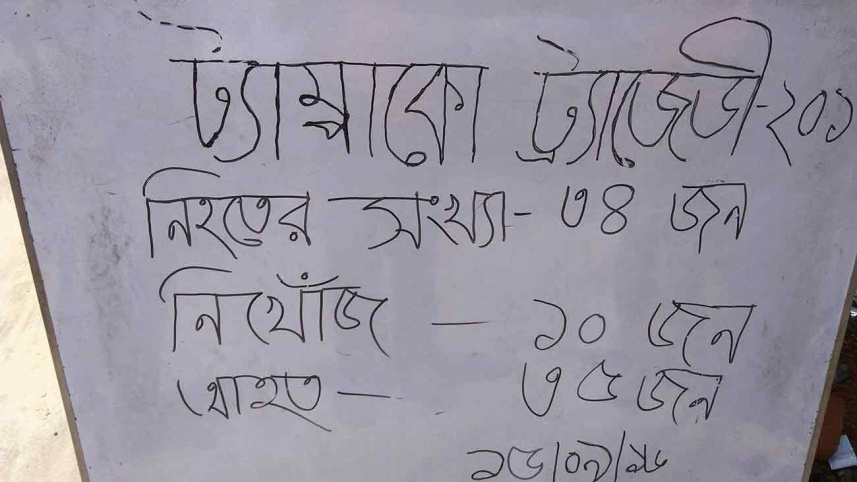 ট্যাম্পাকো ট্র্যাজেডী-২০১
নিহতের সংখ্যা- ৩৪ জন
নিখোঁজ — ১০ জন
আহত — ৩৫ জন